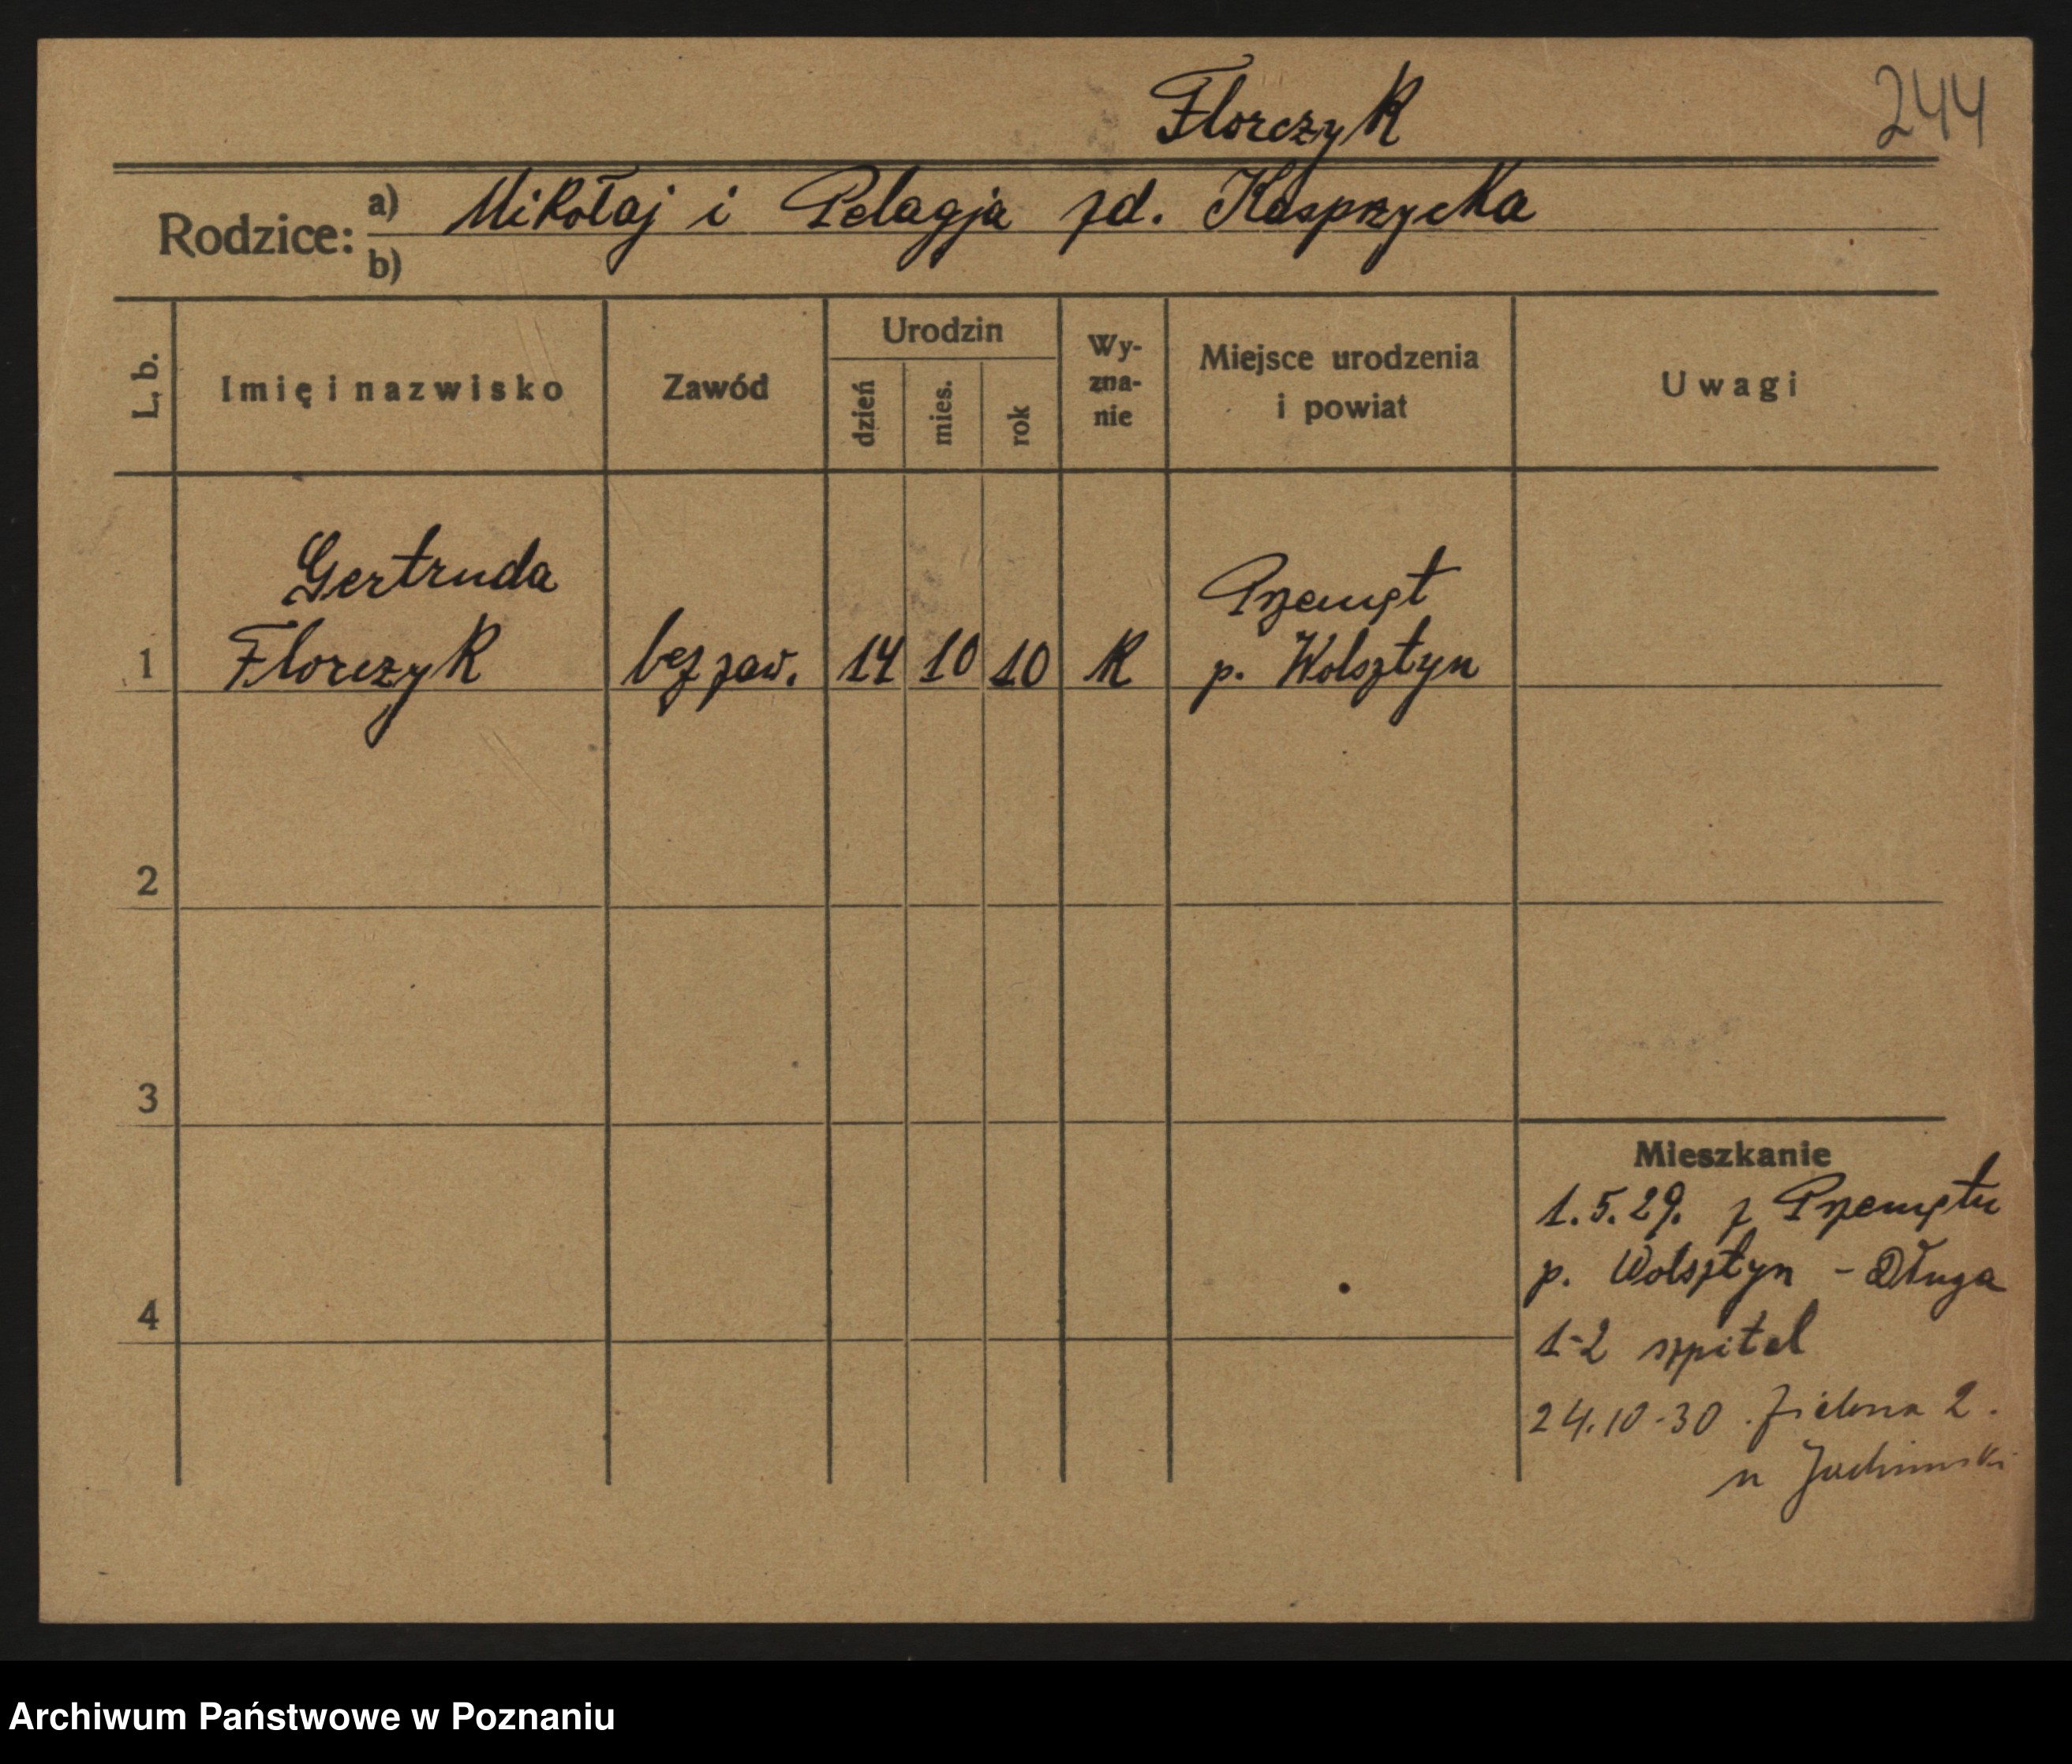 Florczyk 244
Rodzice: a) Mikołaj i Pelagja zd. Kasprzycka
b)
L. b. Imię i nazwisko Zawód Urodzin dzień mies. rok Wy-zna-nie Miejsce urodzenia i powiat Uwagi
Gertruda Przemęt
1 Florczyk bez zaw. 14 10 10 K p. Wolsztyn
2
3
Mieszkanie
1.5.29. z Przemętu
p. Wolsztyn - Długa
4
1-2 szpital
24.10-30. Zielona 2.
u
Archiwum Państwowe w Poznaniu